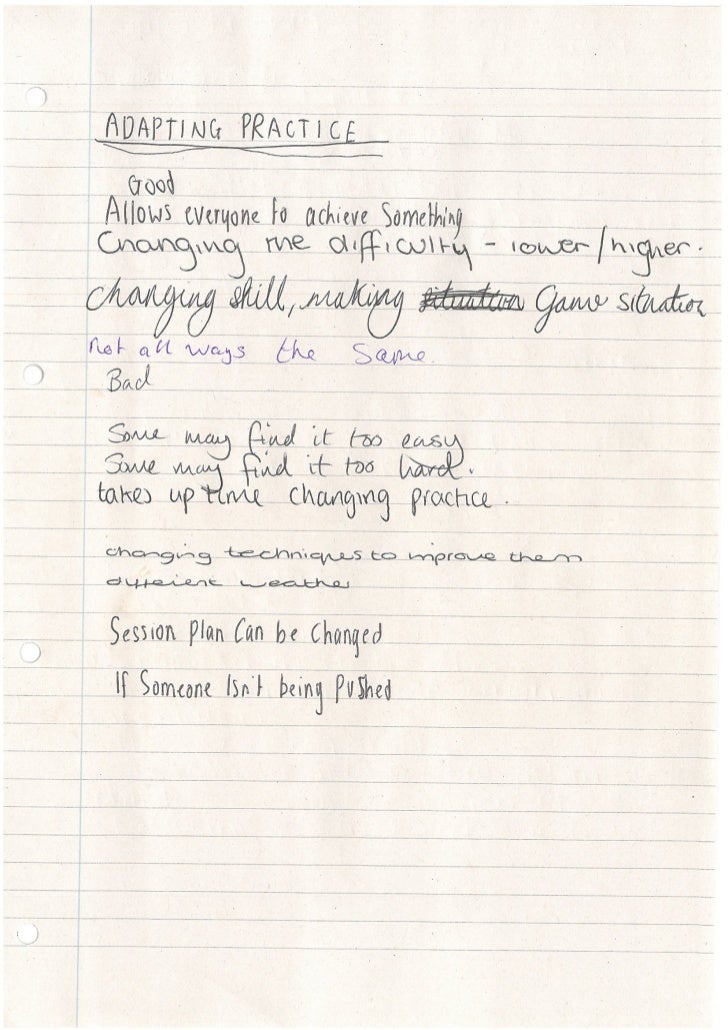 ADAPTING PRACTICE
Good
Allows everyone to achieve Something
Changing the difficulty - lower/higher.
changing skill, making situation Game situation
not all ways the Same.
Bad
Some may find it too easy
Some may find it too hard.
takes up time changing practice.
changing techniques to improve them
different weather
Session Plan Can be Changed
If Someone Isn't being Pushed